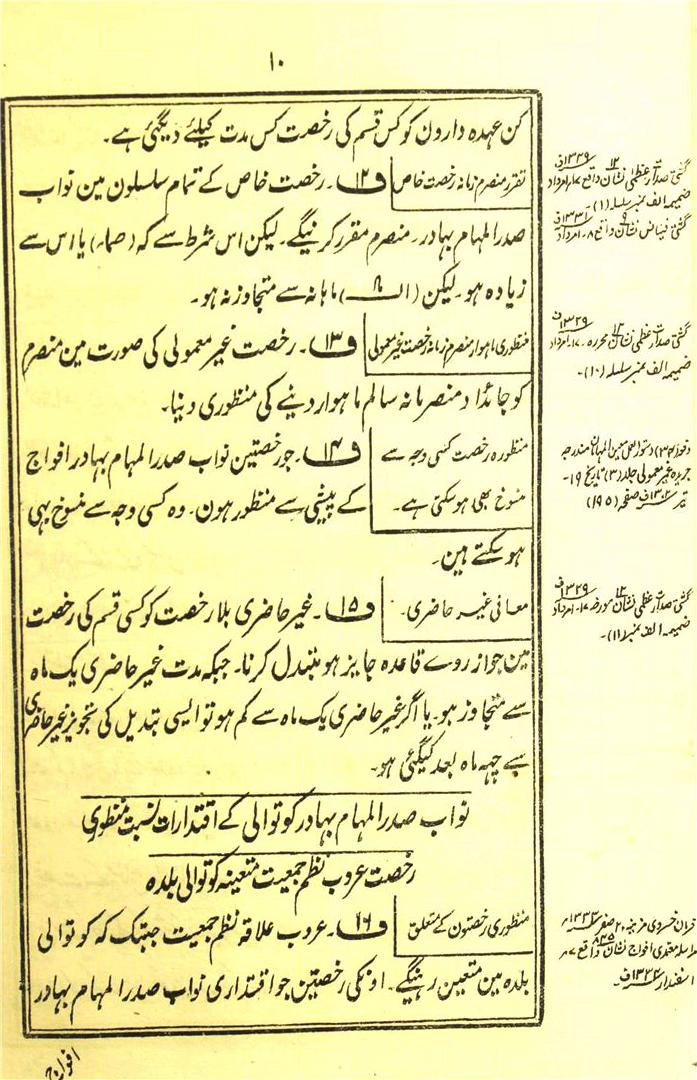 ۱۰
کن عہدہ دارون کو کس قسم کی رخصت کس مدت کیلئے دیگئی ہے۔
تقرر منصرم زمانہ رخصت خاص
ف۱۲۔ رخصت خاص کے تمام سلسلون مین نواب
صدر المہام بہادر۔ منصرم مقرر کرینگے۔ لیکن اس شرط سے کہ یا اس سے
زیادہ ہو۔ لیکن ماہانہ سے متجاوز نہ ہو۔
منظوری ماہوار منصرم زمانہ رخصت غیر معمولی
ف۱۳۔ رخصت غیر معمولی کی صورت مین منصرم
کو جائداد منصرمانہ سالم ماہوار دینے کی منظوری دینا۔
منظورہ رخصت کسی وجہ سے
منسوخ بھی ہوسکتی ہے۔
ف۱۴۔ جو رخصتین نواب صدر المہام بہادر افواج
کے پیشی سے منظور ہون۔ وہ کسی وجہ سے منسوخ بہی
ہو سکتے ہین۔
معافی غیر حاضری۔
ف۱۵۔ غیر حاضری بلا رخصت کو کسی قسم کی رخصت
مین جو از روے قاعدہ جایز ہو متبدل کرنا۔ جبکہ مدت غیر حاضری یک ماہ
سے متجاوز ہو۔ یا اگر غیر حاضری یک ماہ سے کم ہو تو ایسی تبدیل کی تجویز غیر حاضری
سے چہہ ماہ بعد کیگئی ہو۔
نواب صدر المہام بہادر کوتوالی کے اقتدارات نسبت منظوری
رخصت عروب نظم جمعیت متعینہ کوتوالی بلدہ
منظوری رخصتون کے متعلق
ف۱۶۔ عروب علاقہ نظم جمعیت جبتک کہ کوتوالی
بلدہ مین متعین رہینگے۔ اونکی رخصتین جو اقتداری نواب صدر المہام بہادر
افواج
گشتی صدارت عظمی نشان ۱۲ ۱۳۲۹ف واقع ۱۷۔ امرداد
ضمیمہ الف نمبر سلسلہ (۱)۔
گشتی فینانس نشان ۹ ۱۳۳۱ف واقع ۸۔ امرداد
گشتی صدارت عظمی نشان ۱۲ ۱۳۲۹ف محررہ ۱۷۔ امرداد
ضمیمہ الف نمبر سلسلہ (۱۰)۔
دستور العمل معین المہامان مندرجہ
جریدہ غیر معمولی جلد (۳) تاریخ ۱۹۔
صفحہ (۱۹۵)
گشتی صدارت عظمی نشان ۱۲ ۱۳۲۹ف مورخہ ۱۷۔ امرداد
ضمیمہ الف نمبر (۱۱)۔
فرمان خسروی مزینہ ۲۰ صفر
مراسلہ معتمدی افواج نشان ۸۳۵ واقع ۷
اسفندار